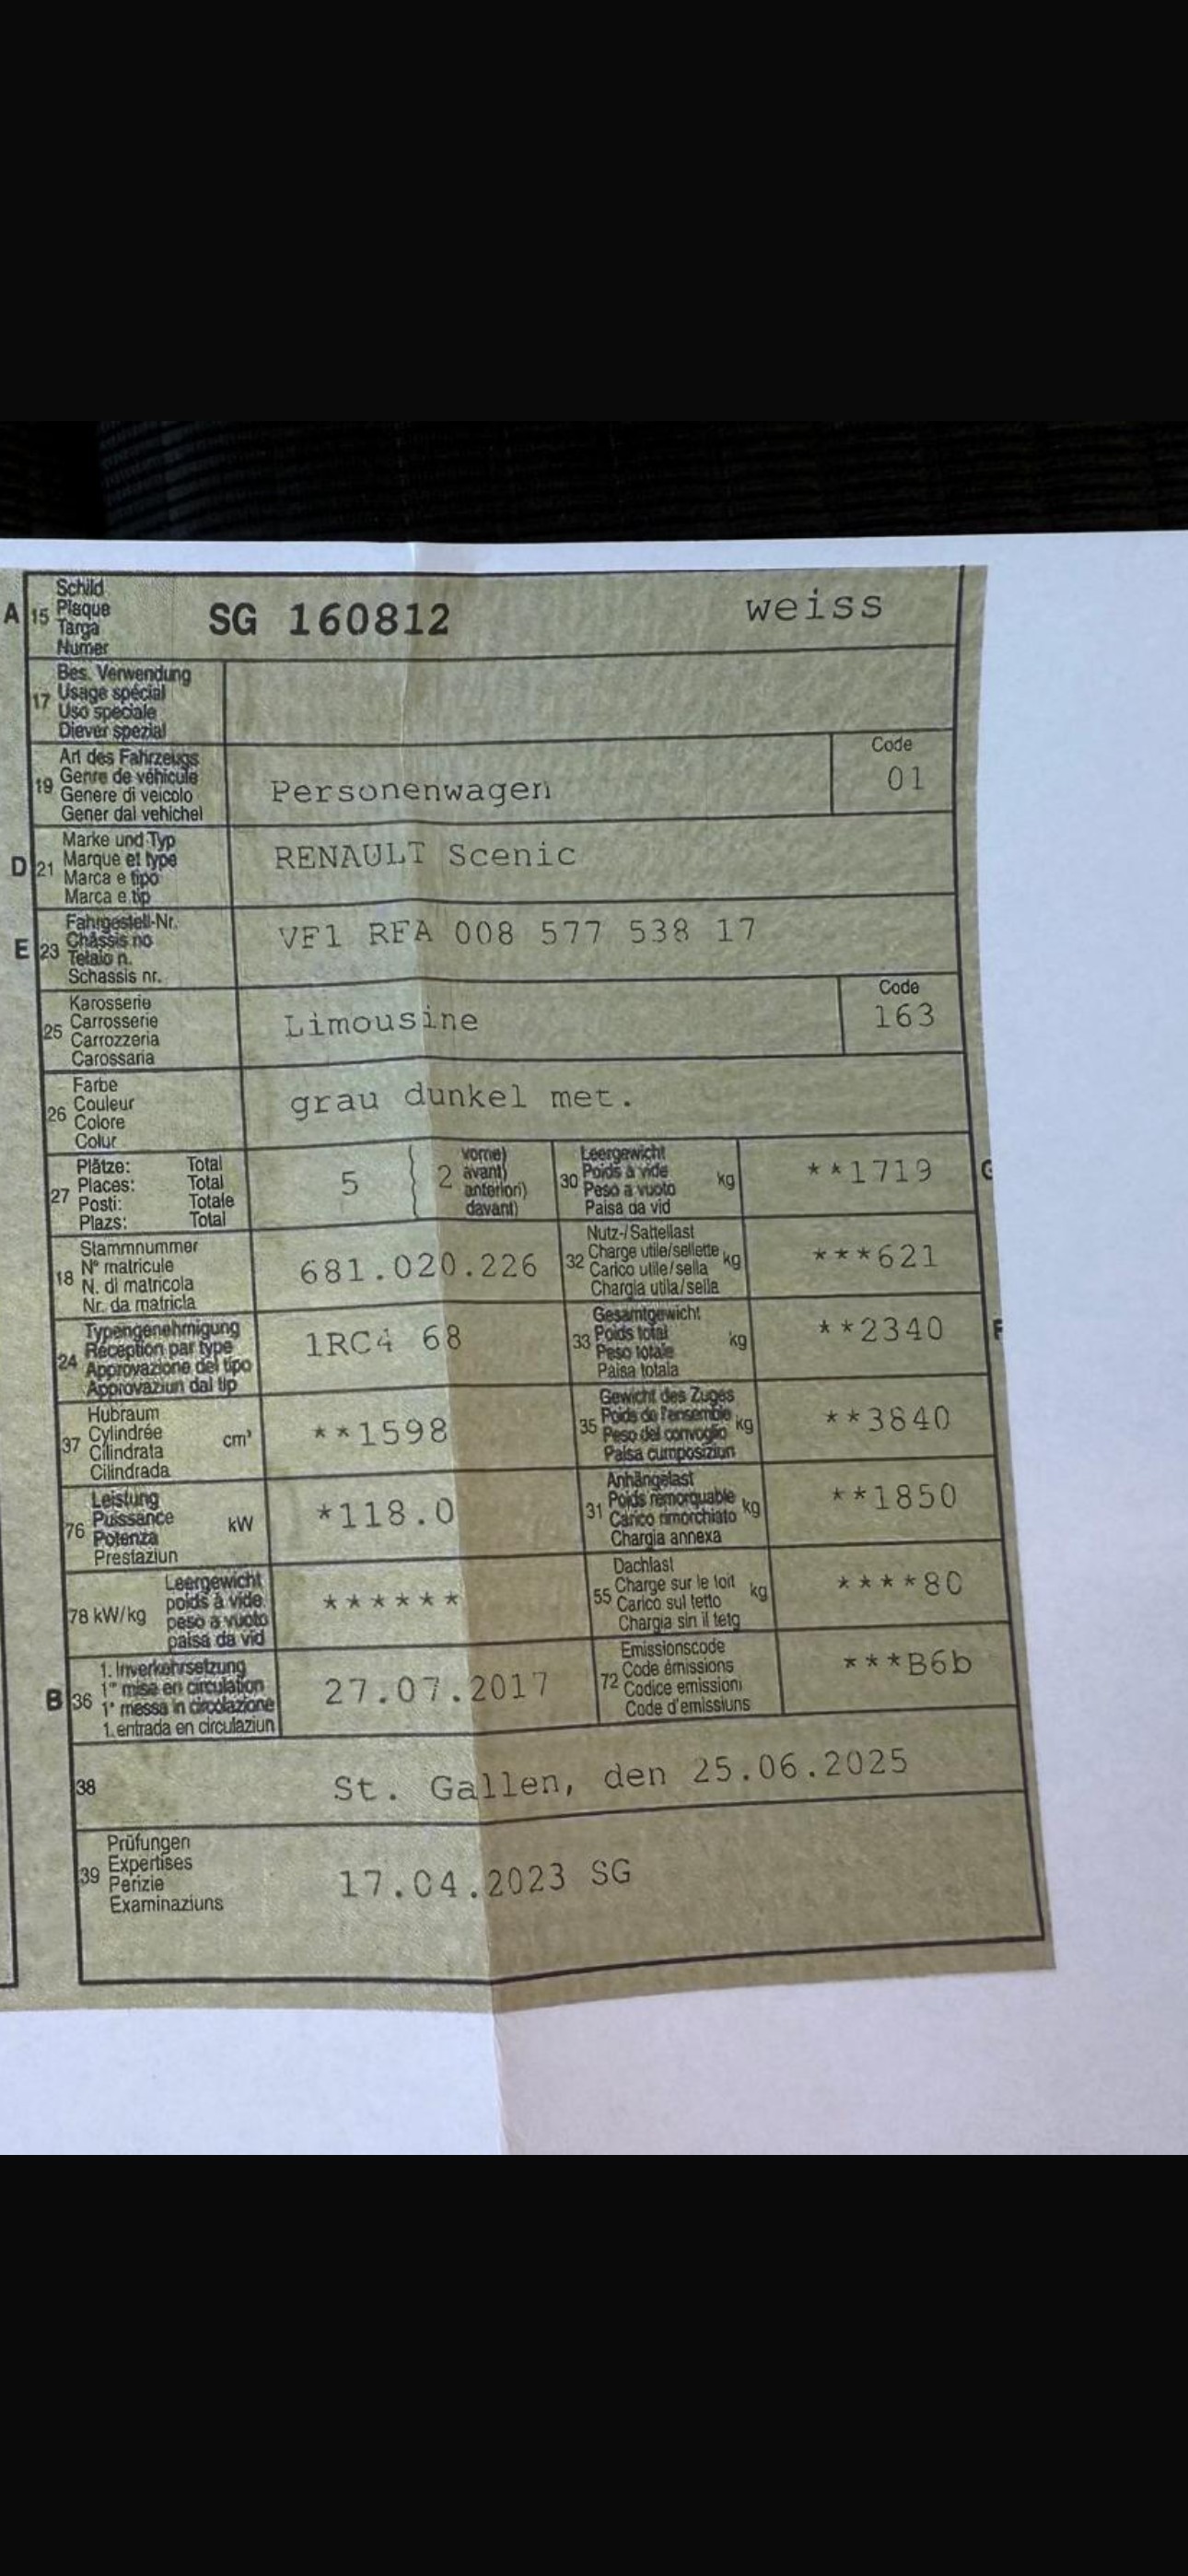 A 15 Schild
Plaque
Targa
Numer
SG 160812 weiss
17 Bes. Verwendung
Usage spécial
Uso speciale
Diever spezial
19 Art des Fahrzeugs
Genre de véhicule
Genere di veicolo
Gener dal vehichel
Personenwagen
Code
01
D 21 Marke und Typ
Marque et type
Marca e tipo
Marca e tip
RENAULT Scenic
E 23 Fahrgestell-Nr.
Châssis no
Telaio n.
Schassis nr.
VF1 RFA 008 577 538 17
25 Karosserie
Carrosserie
Carrozzeria
Carossaria
Limousine
Code
163
26 Farbe
Couleur
Colore
Colur
grau dunkel met.
27 Plätze: Total
Places: Total
Posti: Totale
Plazs: Total
5
2
vorne)
avant)
anteriori)
davant)
30 Leergewicht
Poids à vide kg
Peso a vuoto
Paisa da vid
**1719
G
18 Stammnummer
N° matricule
N. di matricola
Nr. da matricla
681.020.226
32 Nutz-/Sattellast
Charge utile/sellette kg
Carico utile/sella
Chargia utila/sella
***621
24 Typengenehmigung
Réception par type
Approvazione del tipo
Approvaziun dal tip
1RC4 68
33 Gesamtgewicht
Poids total kg
Peso totale
Paisa totala
**2340
F
37 Hubraum
Cylindrée cm³
Cilindrata
Cilindrada
**1598
35 Gewicht des Zuges
Poids de l'ensemble kg
Peso del convoglio
Paisa cumposiziun
**3840
76 Leistung
Puissance kW
Potenza
Prestaziun
*118.0
31 Anhängelast
Poids remorquable kg
Carico rimorchiato
Chargia annexa
**1850
78 kW/kg Leergewicht
poids à vide
peso a vuoto
paisa da vid
******
55 Dachlast
Charge sur le toit kg
Carico sul tetto
Chargia sin il tetg
****80
B 36 1. Inverkehrsetzung
1re mise en circulation
1a messa in circolazione
1. entrada en circulaziun
27.07.2017
72 Emissionscode
Code émissions
Codice emissioni
Code d'emissiuns
***B6b
38 St. Gallen, den 25.06.2025
39 Prüfungen
Expertises
Perizie
Examinaziuns
17.04.2023 SG